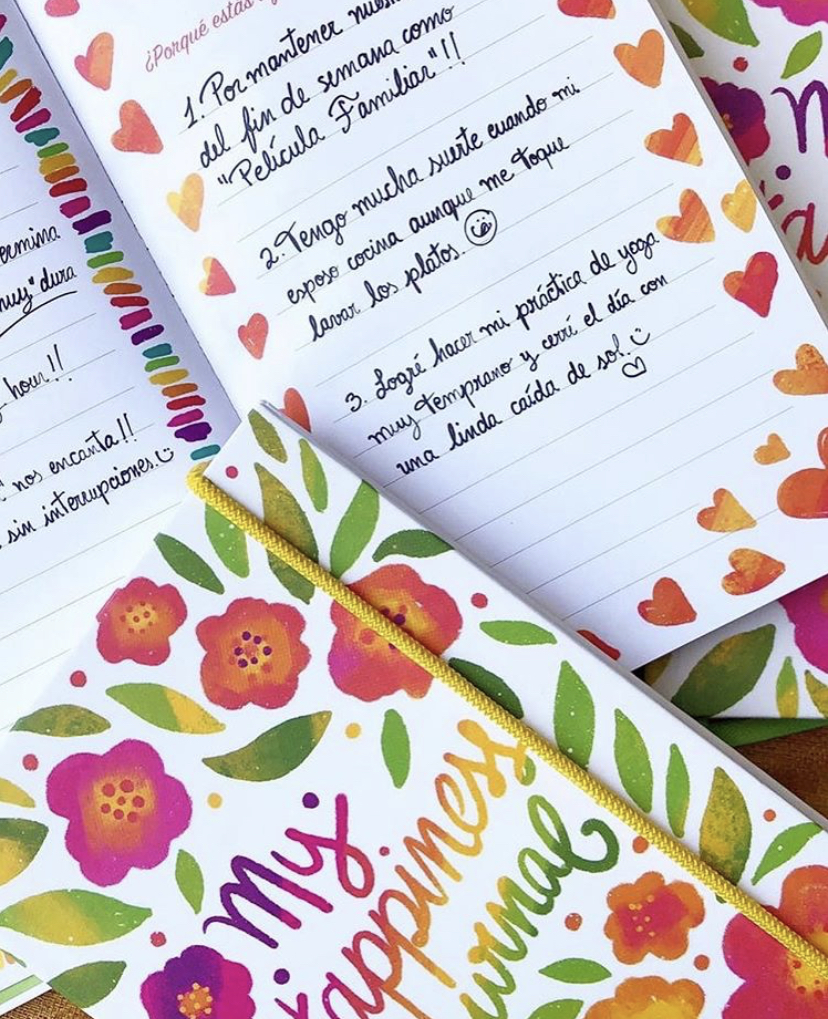 ermina
muy" dura
hour!!
nos encanta!!
sin interrupciones.
¿Porqué estás
1. Por mantener
del fin de semana como
"Película Familiar"!!
2. Tengo mucha suerte cuando mi
esposo cocina aunque me toque
lavar los platos.
3. Logré hacer mi práctica de yoga
muy temprano y cerré el día con
una linda caída de sol.
My
Happiness
Journal